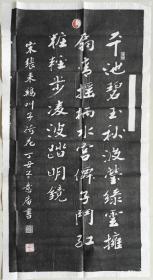 平池碧玉秋波莹绿云拥
扇青摇柄水宫仙子斗红
妆轻步凌波踏明镜
宋张耒鹅州子荷花丁丑子